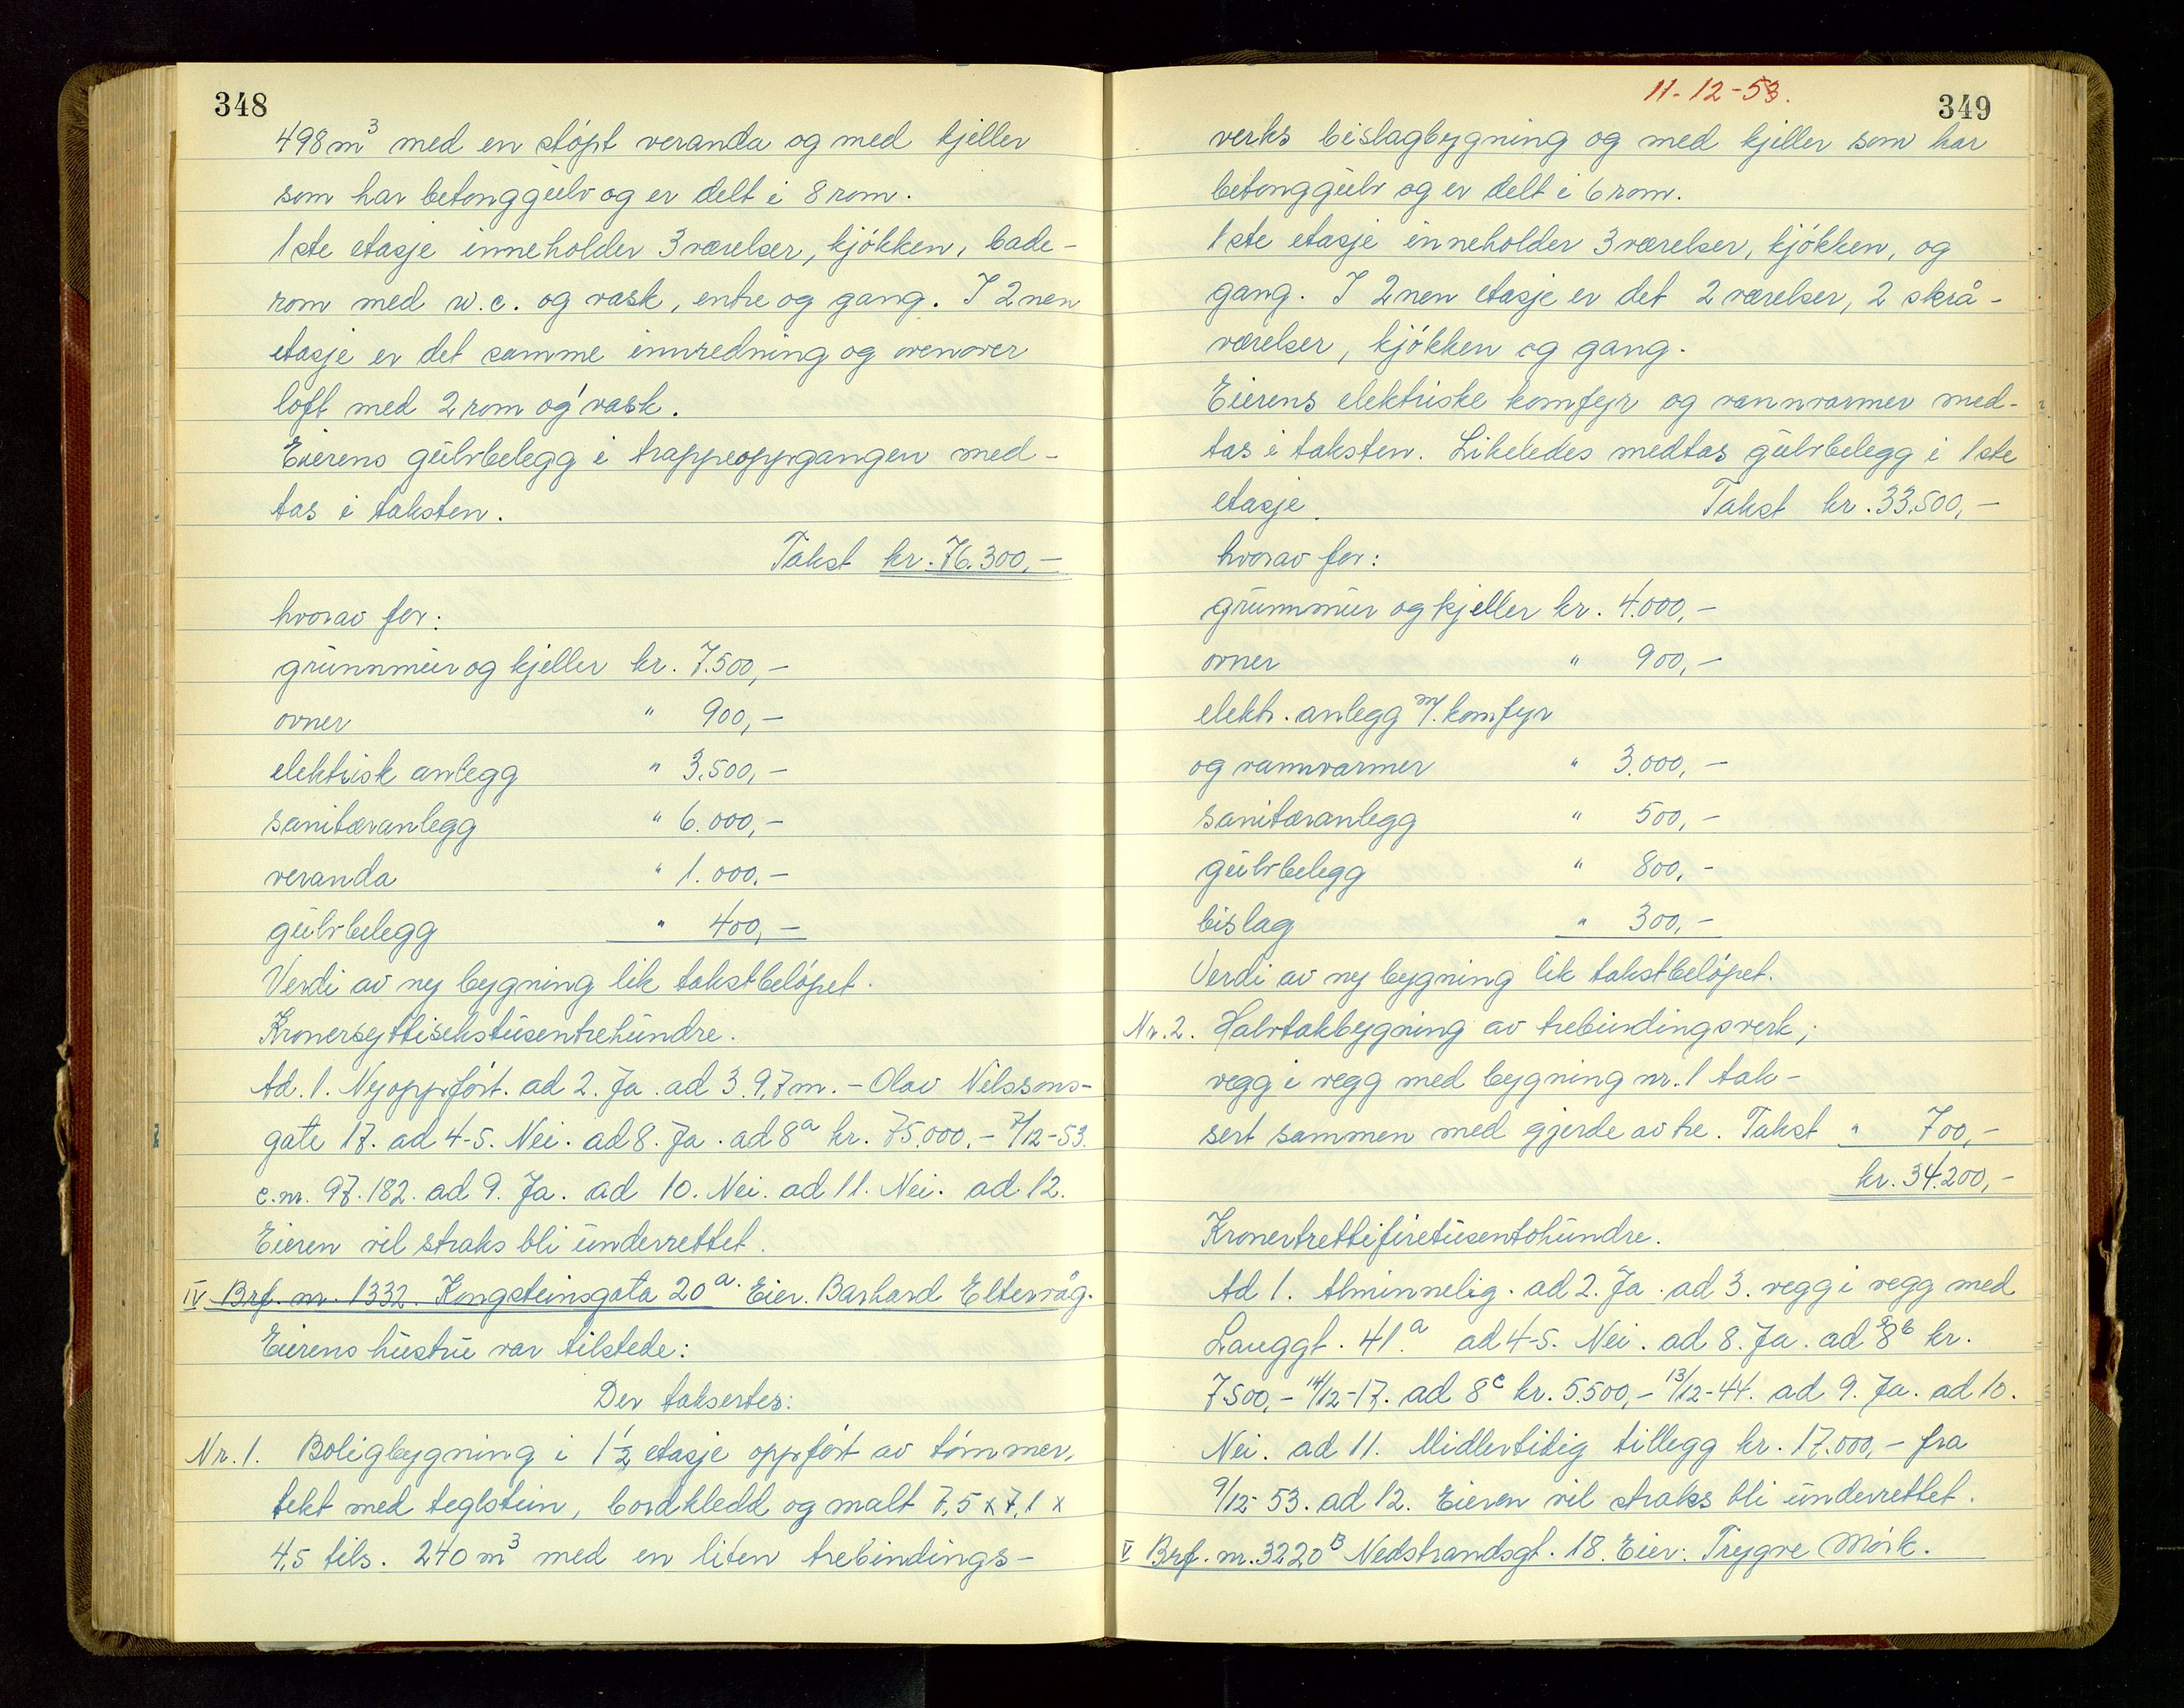 348
498 m³ med en støpt veranda og med kjeller
som har betonggulv og er delt i 8 rom.
1ste etasje inneholder 3 værelser, kjøkken, bade-
rom med w.c. og vask, entre og gang. I 2nen
etasje er det samme innredning og ovenover
loft med 2 rom og vask.
Eierens gulvbelegg i trappeoppgangen med-
tas i taksten.
Takst kr. 76.300,-
hvorav for:
grunnmur og kjeller kr. 7.500,-
ovner " 900,-
elektrisk anlegg " 3.500,-
sanitæranlegg " 6.000,-
veranda " 1.000.-
gulvbelegg " 400,-
Verdi av ny bygning lik takstbeløpet.
Kronersyttisekstusentrehundre.
Ad. 1. Nyoppført. ad 2. Ja. ad 3. 9,7 m. - Olav Nilssons-
gate 17. ad 4-5. Nei. ad 8. Ja. ad 8ª kr. 75.000.- 7/12-53.
c.nr. 97.182. ad 9. Ja. ad 10. Nei. ad 11. Nei. ad 12.
Eieren vil straks bli underrettet.
IV Brf. nr. 1332. Kongsteinsgata 20ª. Eier. Barhard Eltervåg.
Eierens hustru var tilstede:
Der taksertes:
Nr. 1. Boligbygning i 1½ etasje oppført av tømmer,
tekt med teglstein, bordkledd og malt 7,5 x 7,1 x
4,5 tils. 240 m³ med en liten trebindings-
11-12-53.
349
verks bislagbygning og med kjeller som har
betonggulv og er delt i 6 rom.
1ste etasje inneholder 3 værelser, kjøkken, og
gang. I 2nen etasje er det 2 værelser, 2 skrå-
værelser, kjøkken og gang.
Eierens elektriske komfyr og vannvarmer med-
tas i taksten. Likeledes medtas gulvbelegg i 1ste
etasje. Takst kr. 33.500,-
hvorav for:
grunnmur og kjeller kr. 4.000,-
ovner " 900,-
elektr. anlegg m/. komfyr
og vannvarmer " 3.000,-
sanitæranlegg " 500,-
gulvbelegg " 800,-
bislag " 300,-
Verdi av ny bygning lik takstbeløpet.
Nr. 2. Halvtakbygning av trebindingsverk;
vegg i vegg med bygning nr. 1 tak-
sert sammen med gjerde av tre. Takst " 700,-
kr. 34.200,-
Kronertrettifiretusentohundre.
Ad 1. Alminnelig. ad 2. Ja. ad 3. vegg i vegg med
Langgt. 41ª. ad 4-5. Nei. ad 8. Ja. ad ª8ᵇ kr.
7500,- 14/12-17. ad 8ᶜ kr. 5.500,- 13/12-44. ad 9. Ja. ad 10.
Nei. ad 11. Midlertidig tillegg kr. 17.000,- fra
9/12-53. ad 12. Eieren vil straks bli underrettet.
V Brf. nr. 3220ᴮ Nedstrandsgt. 18. Eier: Trygve Mørk.